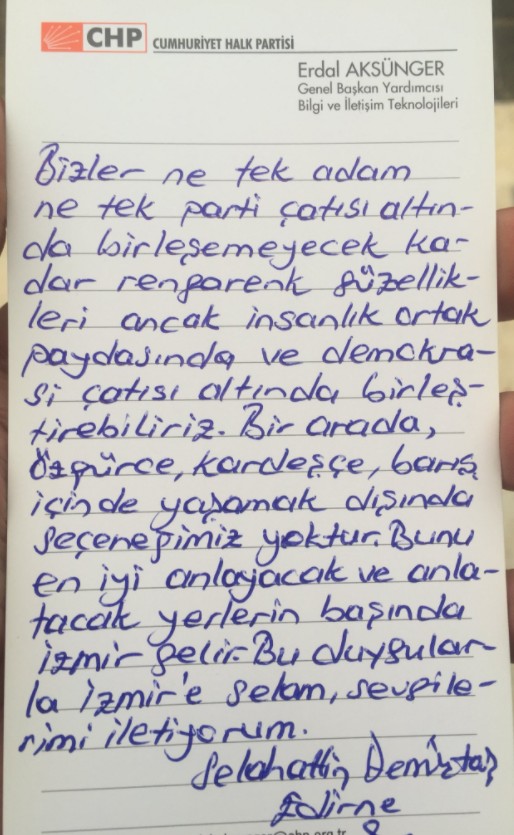 CHP CUMHURİYET HALK PARTİSİ
Erdal AKSÜNGER
Genel Başkan Yardımcısı
Bilgi ve İletişim Teknolojileri
Bizler ne tek adam
ne tek parti çatısı altın-
da birleşemeyecek ka-
dar rengarenk güzellik-
leri ancak insanlık ortak
paydasında ve demokra-
si çatısı altında birleş-
tirebiliriz. Bir arada,
özgürce, kardeşçe, barış
içinde yaşamak dışında
seçeneğimiz yoktur. Bunu
en iyi anlayacak ve anla-
tacak yerlerin başında
İzmir gelir. Bu duygular-
la İzmir'e selam, sevgile-
rimi iletiyorum.
Selahattin Demirtaş
Edirne